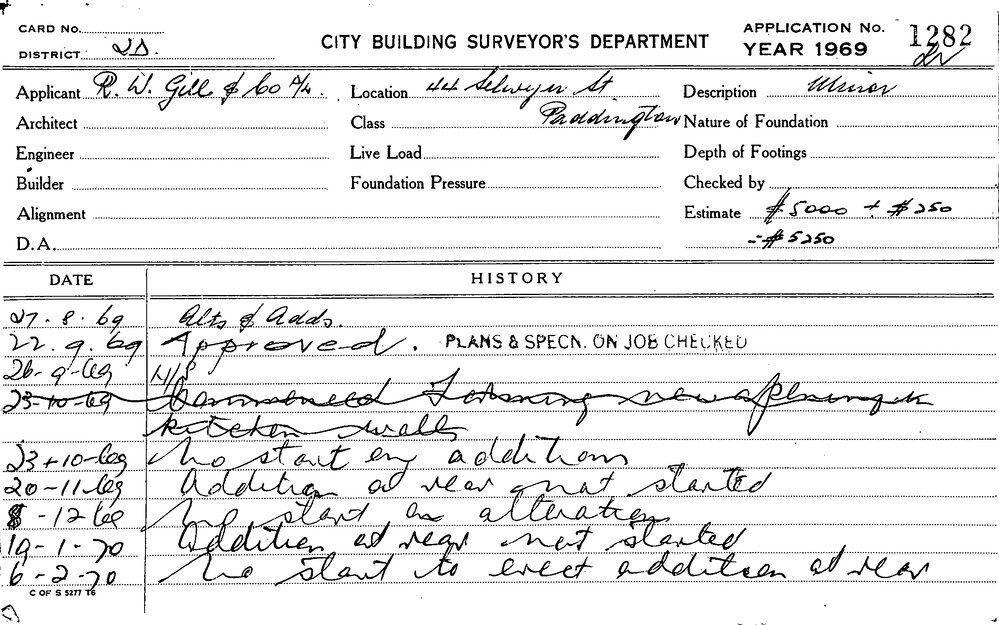 CARD No.
DISTRICT 2D.
CITY BUILDING SURVEYOR'S DEPARTMENT
APPLICATION No. 1282
YEAR 1969
Applicant R. W. Gill & Co
Location 44 Selwyn St.
Paddington
Description Minor
Architect
Class
Nature of Foundation
Engineer
Live Load
Depth of Footings
Builder
Foundation Pressure
Checked by
Alignment
Estimate $5000 + $250
D.A.
= $5250
DATE HISTORY
27. 8. 69 Alts & Adds.
22. 9. 69 Approved. PLANS & SPECN. ON JOB CHECKED
26-9-69 N/S
23-10-69 Commenced forming new opening in
kitchen walls
23-10-69 No start on additions
20-11-69 Addition at rear not started
8-12-69 No start on alterations
19-1-70 Addition at rear not started
6-2-70 No start to erect addition at rear
C OF S 5277 T6